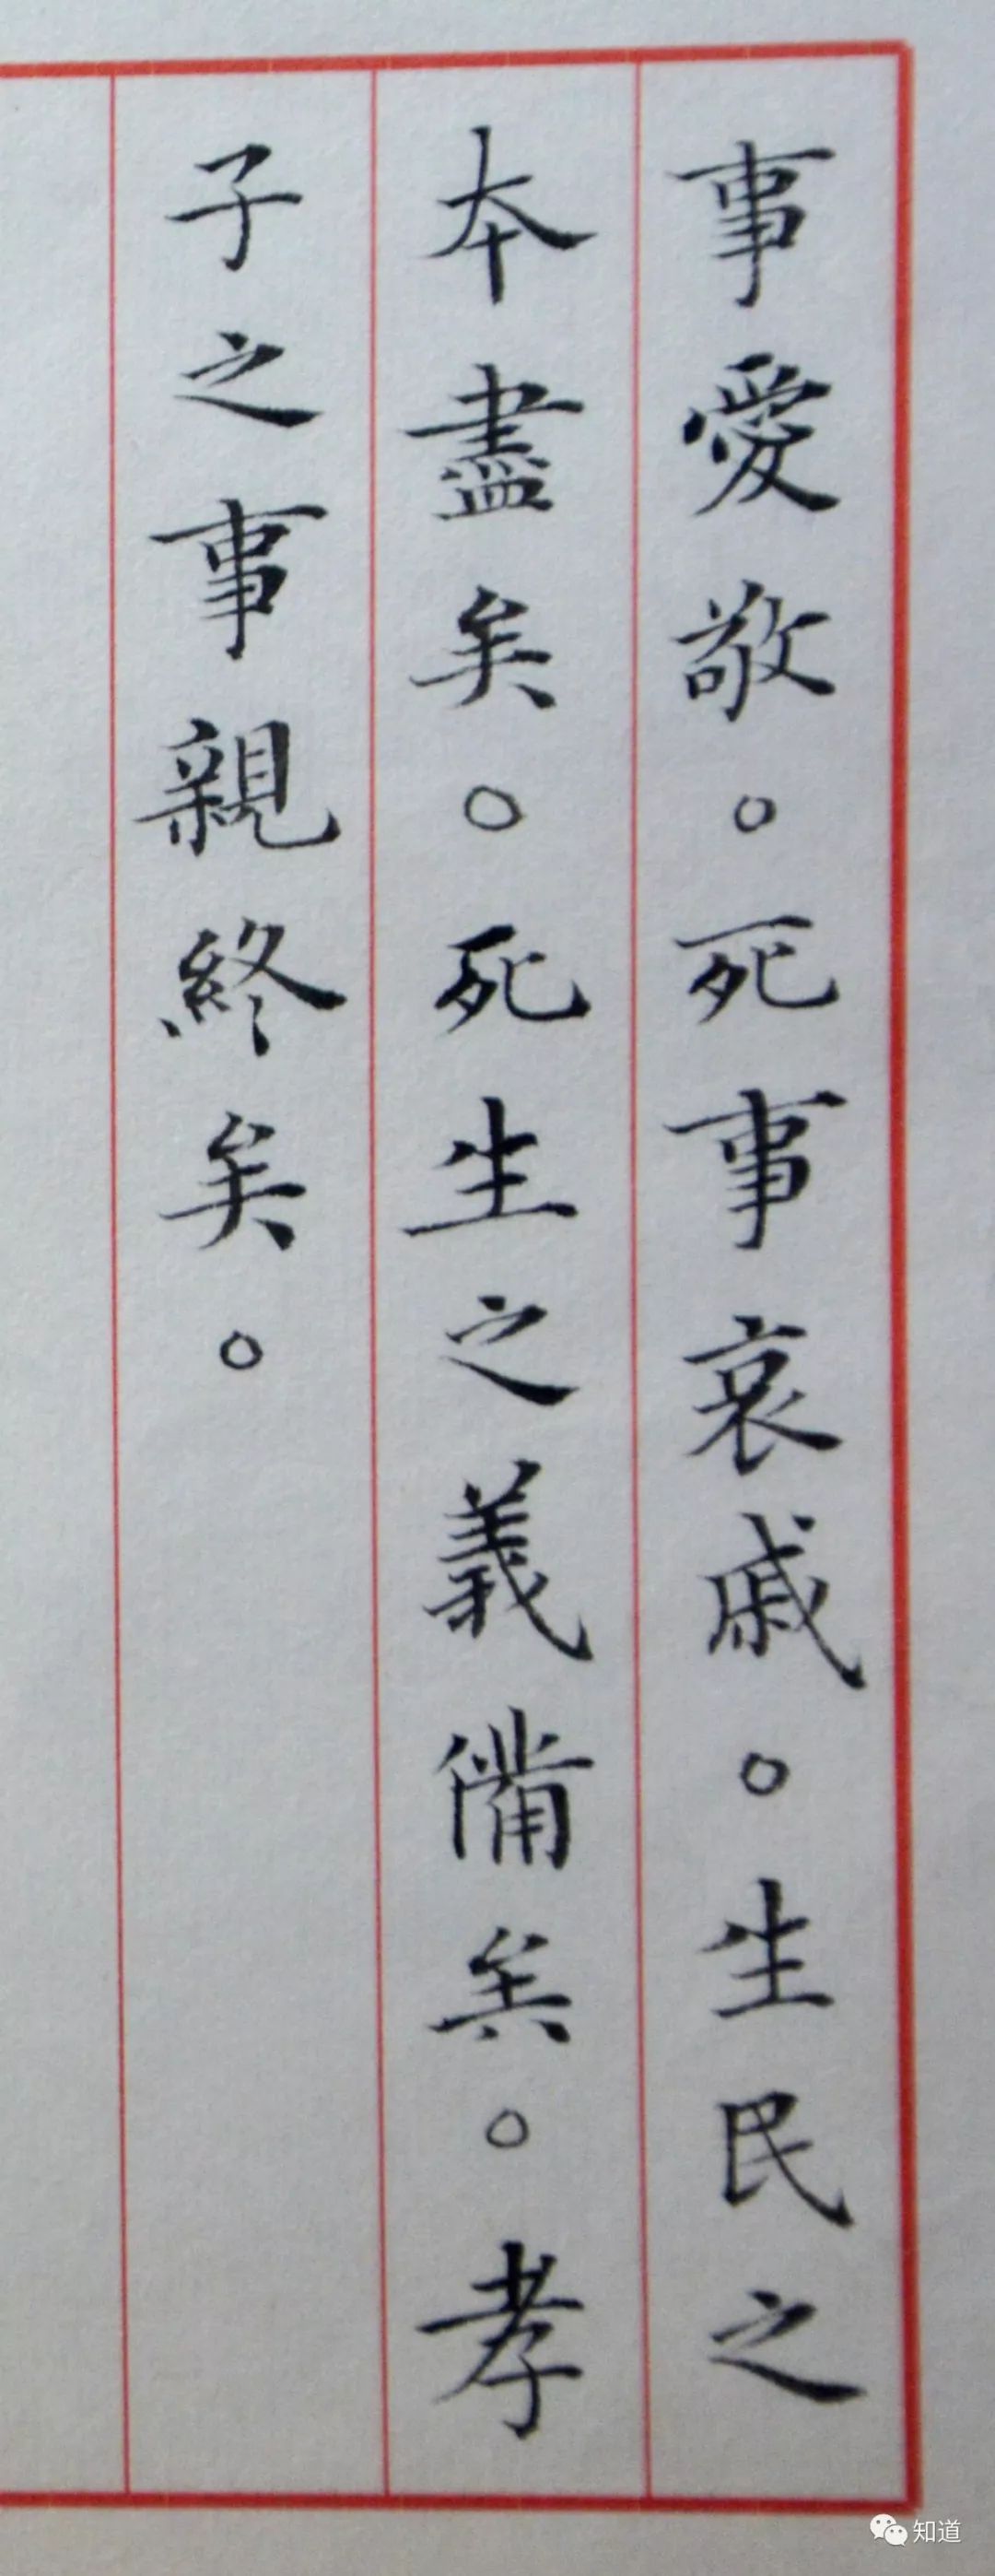 事愛敬。死事哀戚。生民之
本盡矣。死生之義備矣。孝
子之事親終矣。
知道